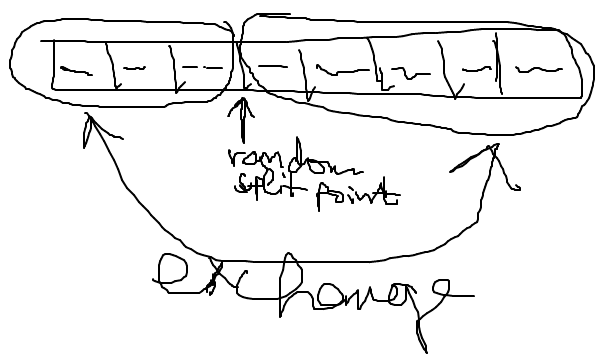 random
split point
exchange